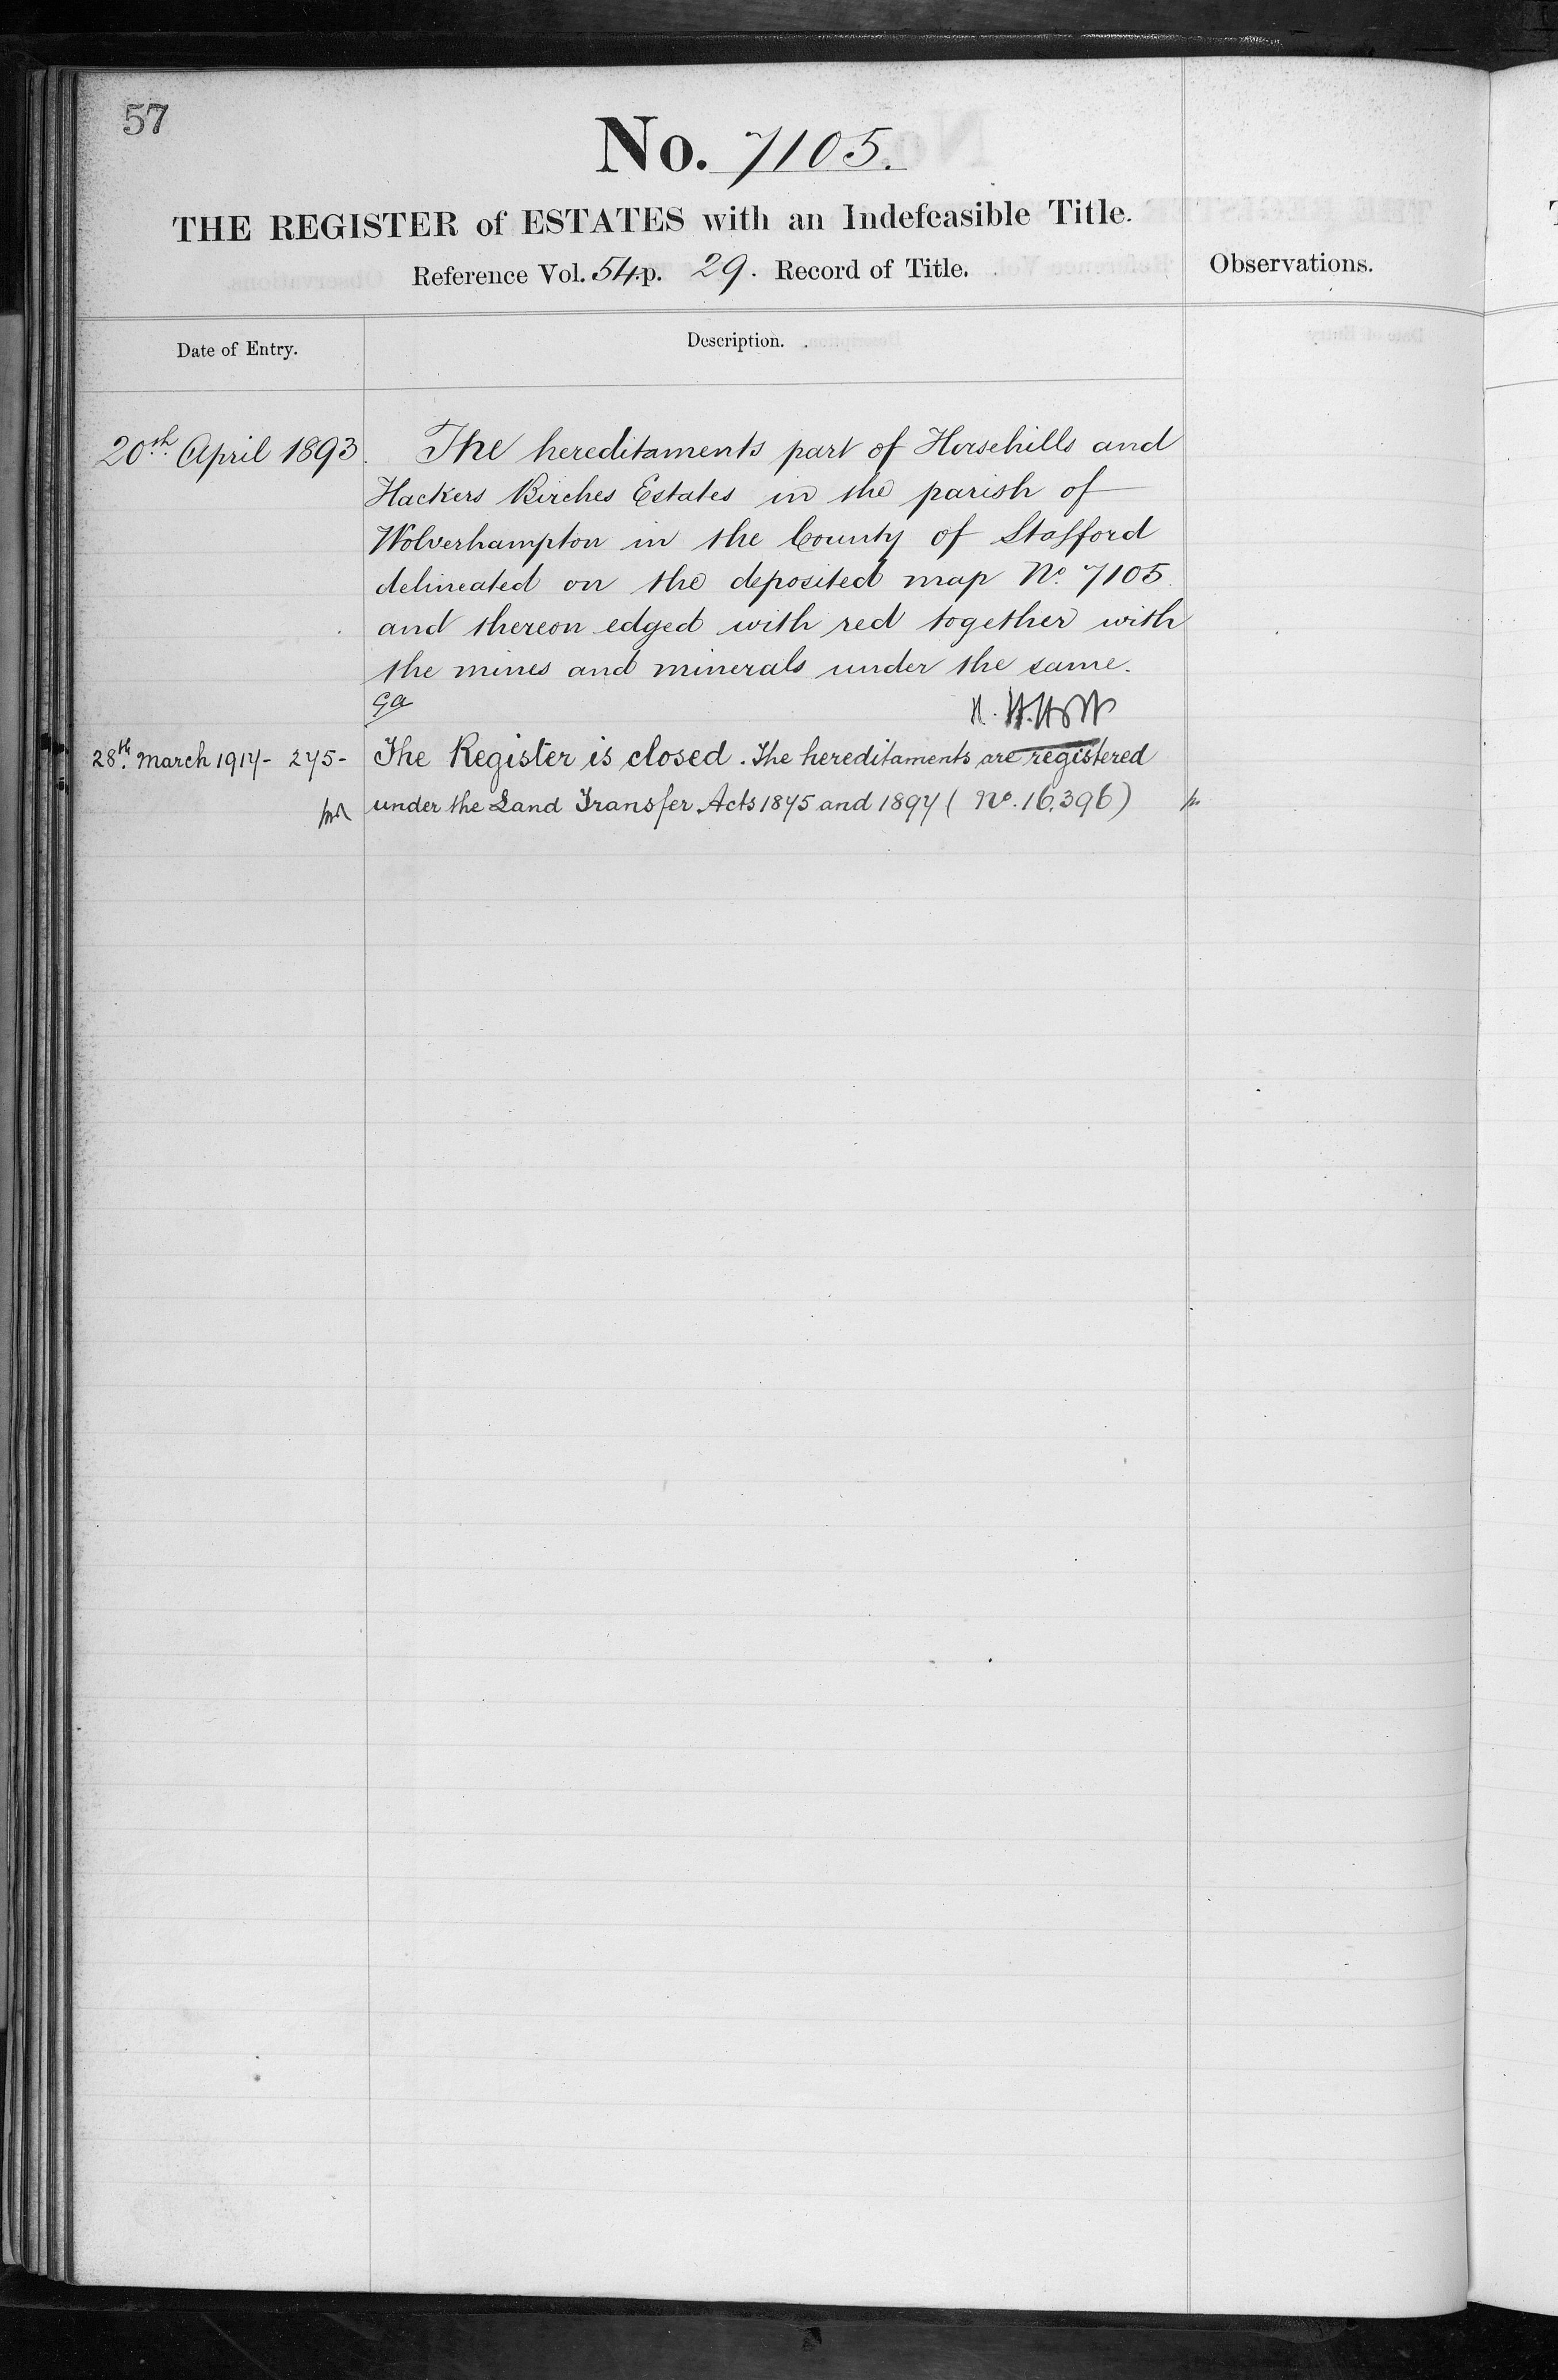 57
No. 7105.
THE REGISTER of ESTATES with an Indefeasible Title.
Reference Vol. 54. p. 29. Record of Title.
Observations.
Date of Entry.
Description.
20th April 1893. The hereditaments part of Horsehills and
Hackers Birches Estates in the parish of
Wolverhampton in the County of Stafford
delineated on the deposited map No. 7105.
and thereon edged with red together with
the mines and minerals under the same.
28th March 1917 - 275 - The Register is closed. The hereditaments are registered
under the Land Transfer Acts 1875 and 1897 (No. 16,396)